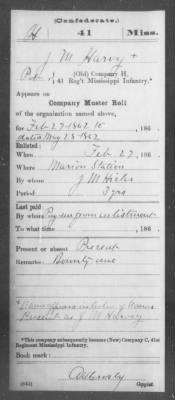 (Confederate.)
H 41 Miss.
J M Harvy +
Pvt., (Old) Company H,
41 Reg't Mississippi Infantry.*
Appears on
Company Muster Roll
of the organization named above,
for Feb 27 1862 to , 186 .
dated May 28 1862
Enlisted:
When Feb 27 , 186 .
Where Marion Station
By whom J M Hicks
Period 3 yrs
Last paid:
By whom from enlistment
To what time , 186 .
Present or absent Present
Remarks: Bounty due
as J M Harvey
*This company subsequently became (New) Company C, 41st Regiment Mississippi Infantry.
Book mark:
(642) Copyist.